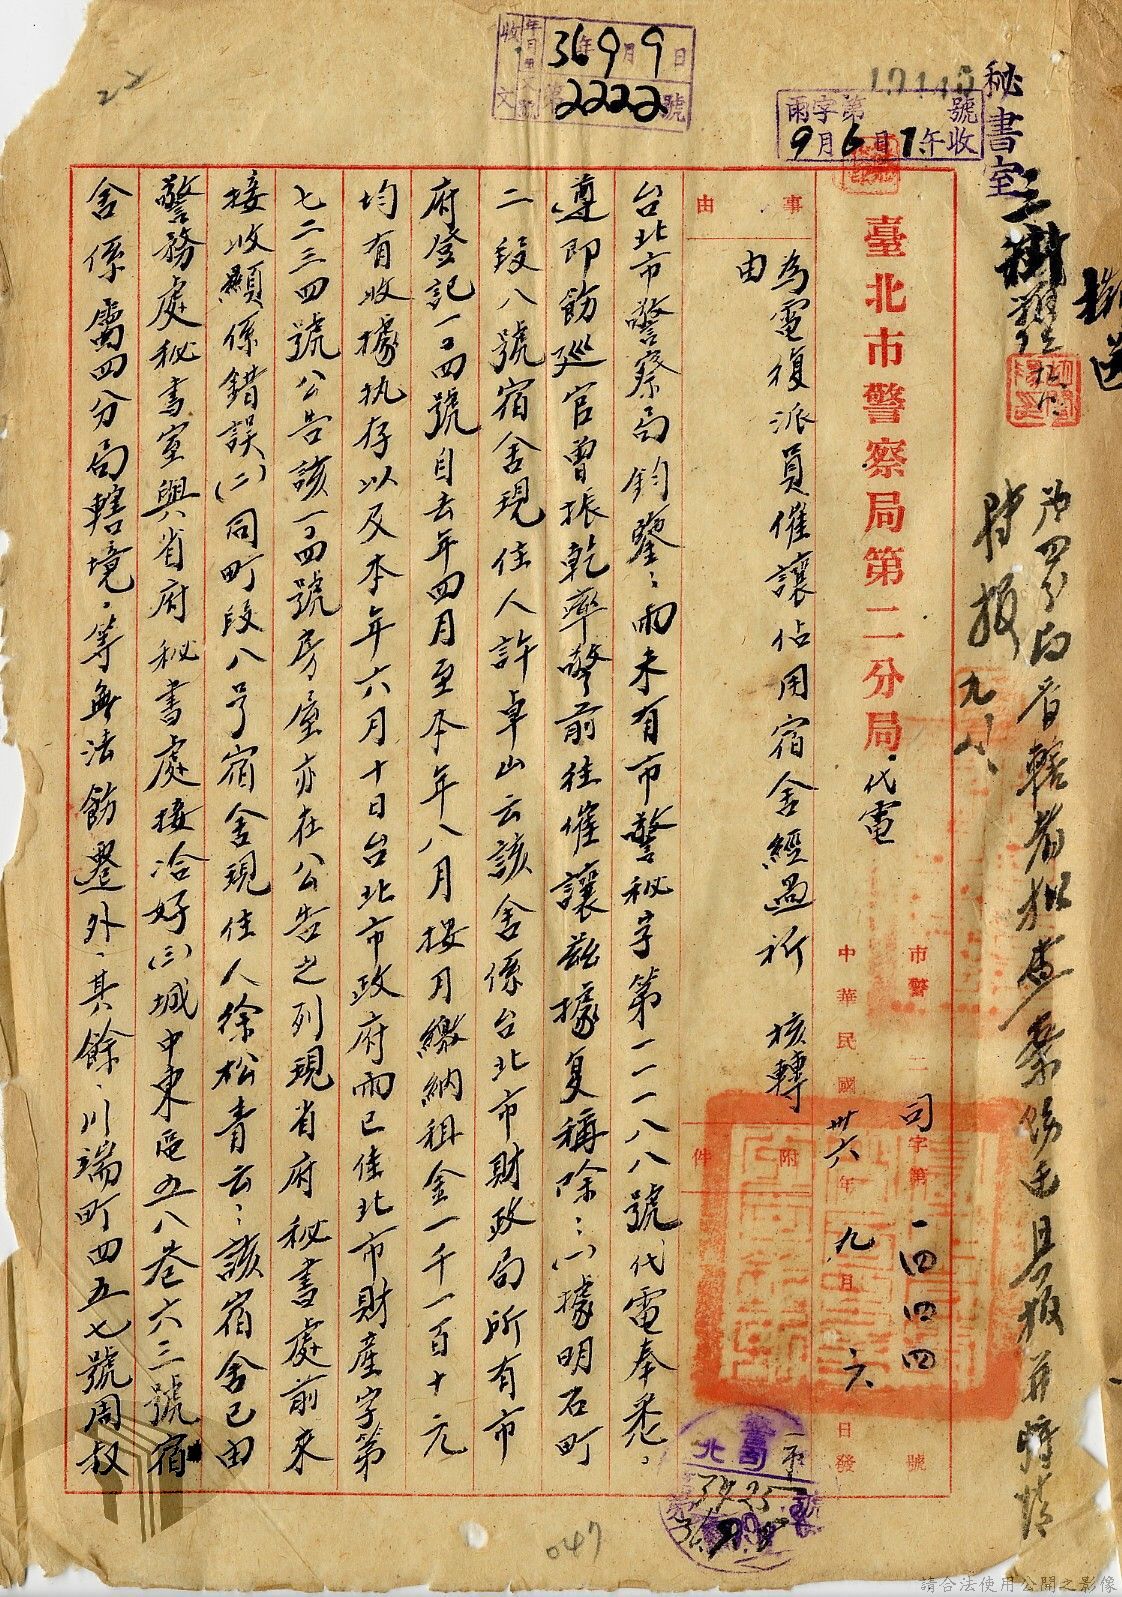 秘書室
雨字第 號
9月6日 午收
收文
36年9月9日
第2222號
臺北市警察局第二分局代電
市警二司字第一四四四號
中華民國卅六年九月六日發
事由
為電復派員催讓佔用宿舍經過祈 核轉
由
附件
台北市警察局鈞鑒：雨未有市警秘字第一一一八八號代電奉悉，
遵即飭巡官曾振乾率警前往催讓茲據复稱除：(一)據明石町
二段八號宿舍現住人許卓山云該舍係台北市財政局所有市
府登記一〇四號自去年四月至本年八月按月繳納租金一千一百十元
均有收據执存以及本年六月十日台北市政府雨已佳北市財產字第
七二三四號公告該一〇四號房屋亦在公告之列現省府秘書處前來
接收顯係錯誤(二)同町段八号宿舍現住人徐松青云：該宿舍已由
警務處秘書室與省府秘書處接洽好(三)城中東區五八巷六三號宿
舍係屬四分局轄境，等無法飭遷外，其餘，川端町四五七號周叔
22
047
請合法使用公開之影像